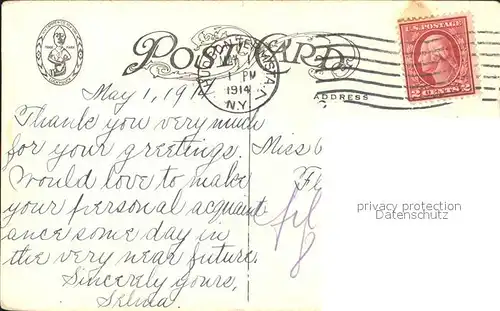 POST CARD
1 PM
1914
N.Y.
2 CENTS 2
ADDRESS
May 1, 191
Thank you very much
for your greetings. Miss
Would love to make
your personal acquaint
ance some day in
the very near future.
Sincerely yours,
Selma.
privacy protection
Datenschutz